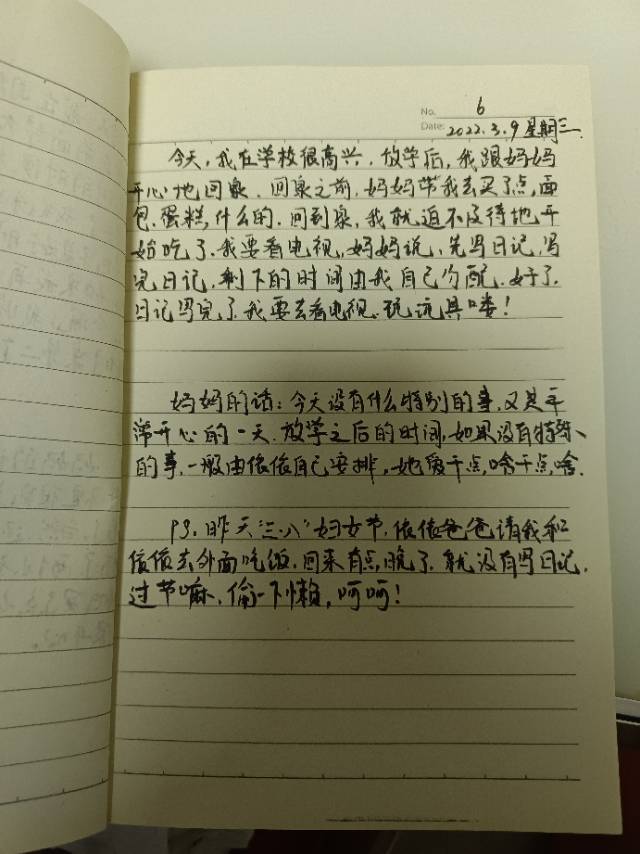 No. 6
Date: 2022.3.9 星期三
今天，我在学校很高兴，放学后，我跟妈妈
开心地回家，回家之前，妈妈带我去买了点，面
包、蛋糕，什么的，回到家，我就迫不及待地开
始吃了，我要看电视，妈妈说，先写日记，写
完日记，剩下的时间由我自己分配，好了，
日记写完了，我要去看电视、玩玩具喽！
妈妈的话：今天没有什么特别的事，又是平
常开心的一天，放学之后的时间，如果没有特殊
的事，一般由依依自己安排，她爱干点啥干点啥.
PS：昨天"三.八"妇女节，依依爸爸请我和
依依去外面吃饭，回来有点晚了，就没有写日记，
过节嘛，偷一下懒，呵呵！